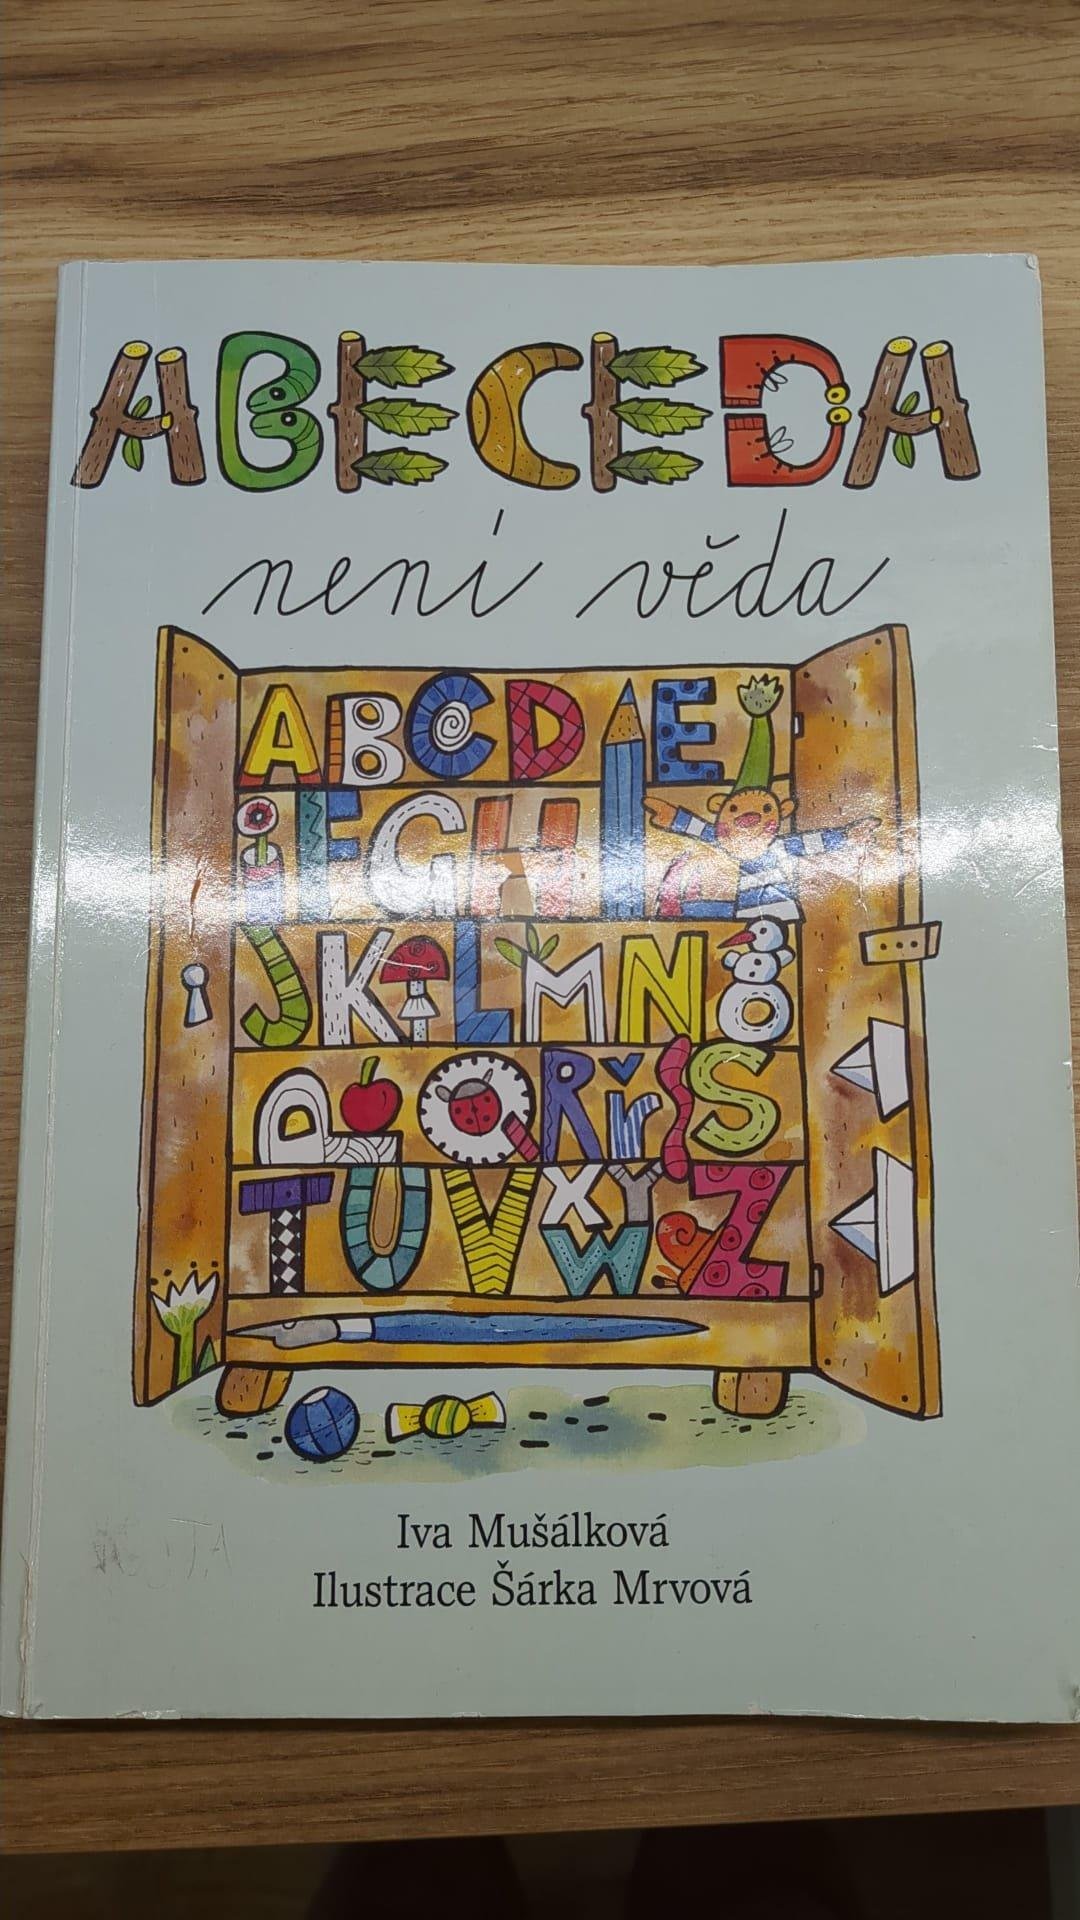 ABECEDA
není věda
ABCDE
FGHI
JKLMN
PQRŘS
TUVXYZ
W
Iva Mušálková
Ilustrace Šárka Mrvová